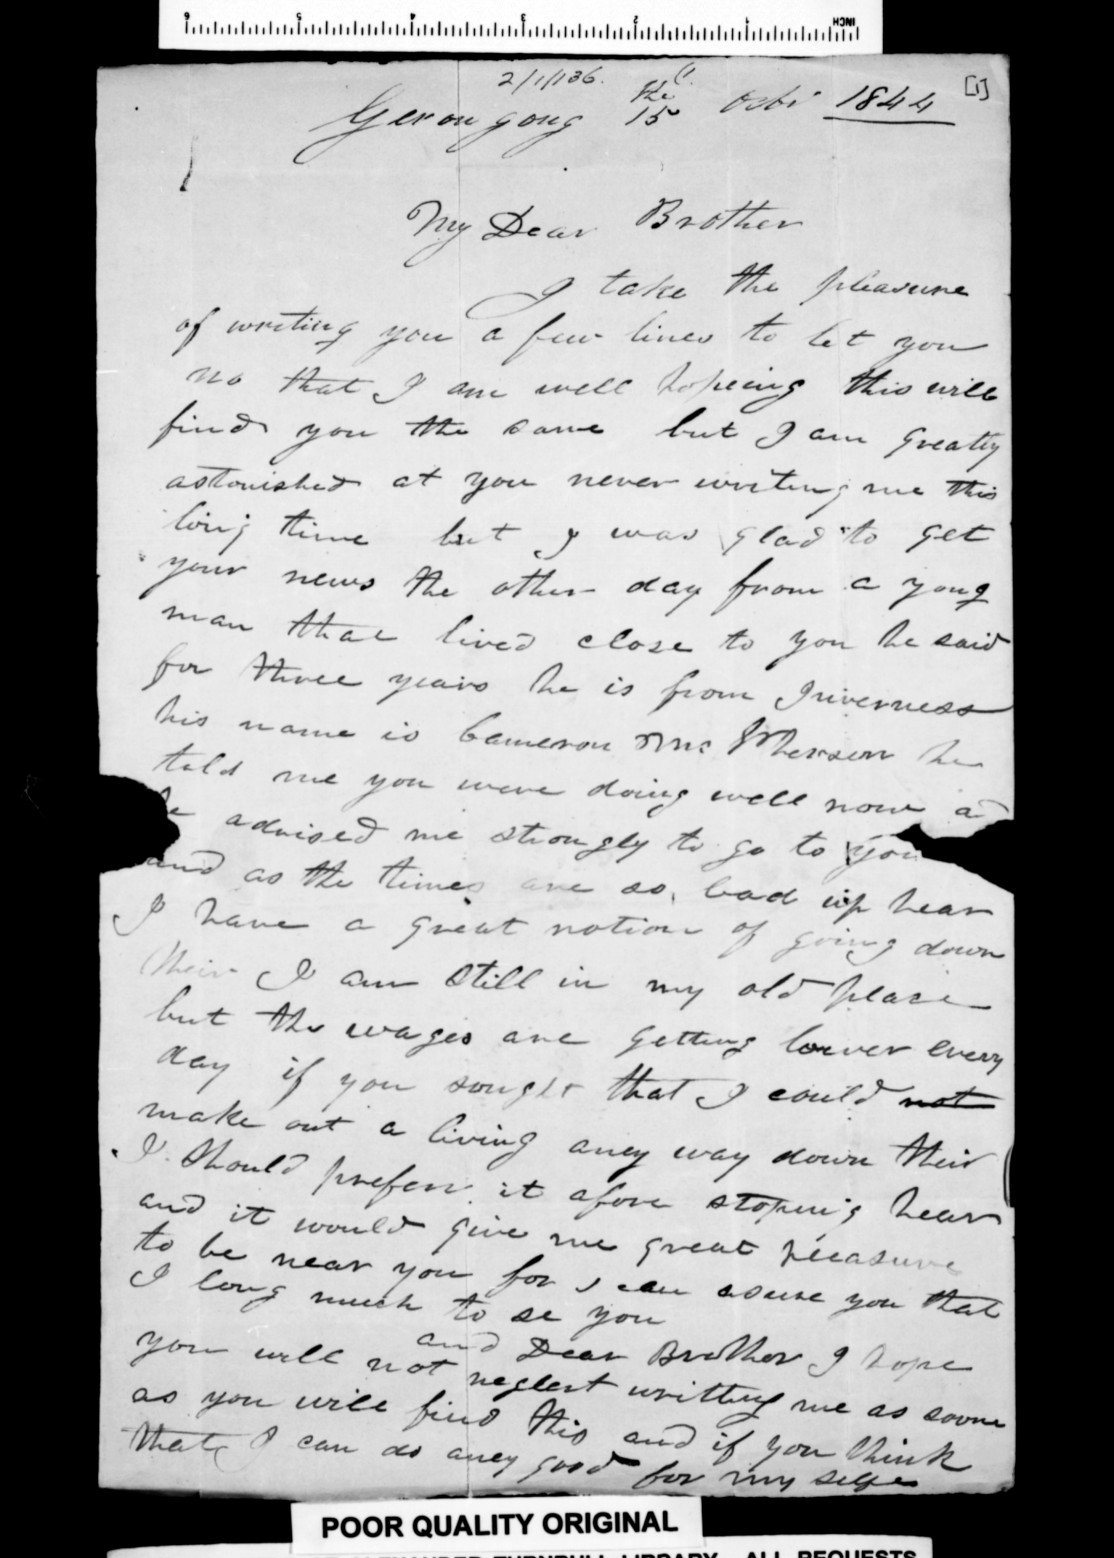 INCH
2/1/136.
[1]
Gerongong 15 the Octr 1844
My Dear Brother
I take the pleasure
of writing you a few lines to let you
no that I am well hopeing this will
find you the same but I am greatly
astonished at you never writeing me this
long time but I was glad to get
your news the other day from a yong
man that lived close to you he said
for three years he is from Inverness
his name is Cameron Mc Pherson he
told me you were doing well now a
he advised me strongly to go to you
and as the times are so bad up hear
I have a great notion of going down
their I am still in my old place
but the wages are getting lower every
day if you sought that I could not
make out a living aney way down their
I should preferr it afore stoping hear
and it would give me great pleasure
to be near you for I can asure you that
I long much to se you
and Dear Brother I hope
you will not neglect writting me as soone
as you will find this and if you think
that I can do aney good for my selfe
POOR QUALITY ORIGINAL
ALEXANDER TURNBULL LIBRARY. ALL REQUESTS